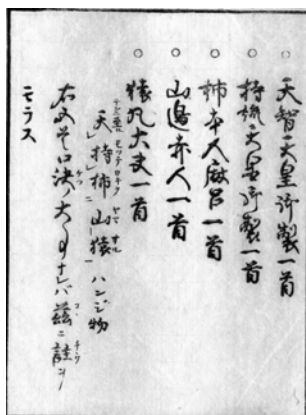 ○ 天智天皇御製一首
○ 持統天皇御製一首
○ 柿本人麻呂一首
○ 山邊赤人一首
○ 猿丸大夫一首
天「持「柿ニ山ー猿ー ハンジ物
右文ぞ口決ノ大事ナレバ茲ニ註ヲ
モラス